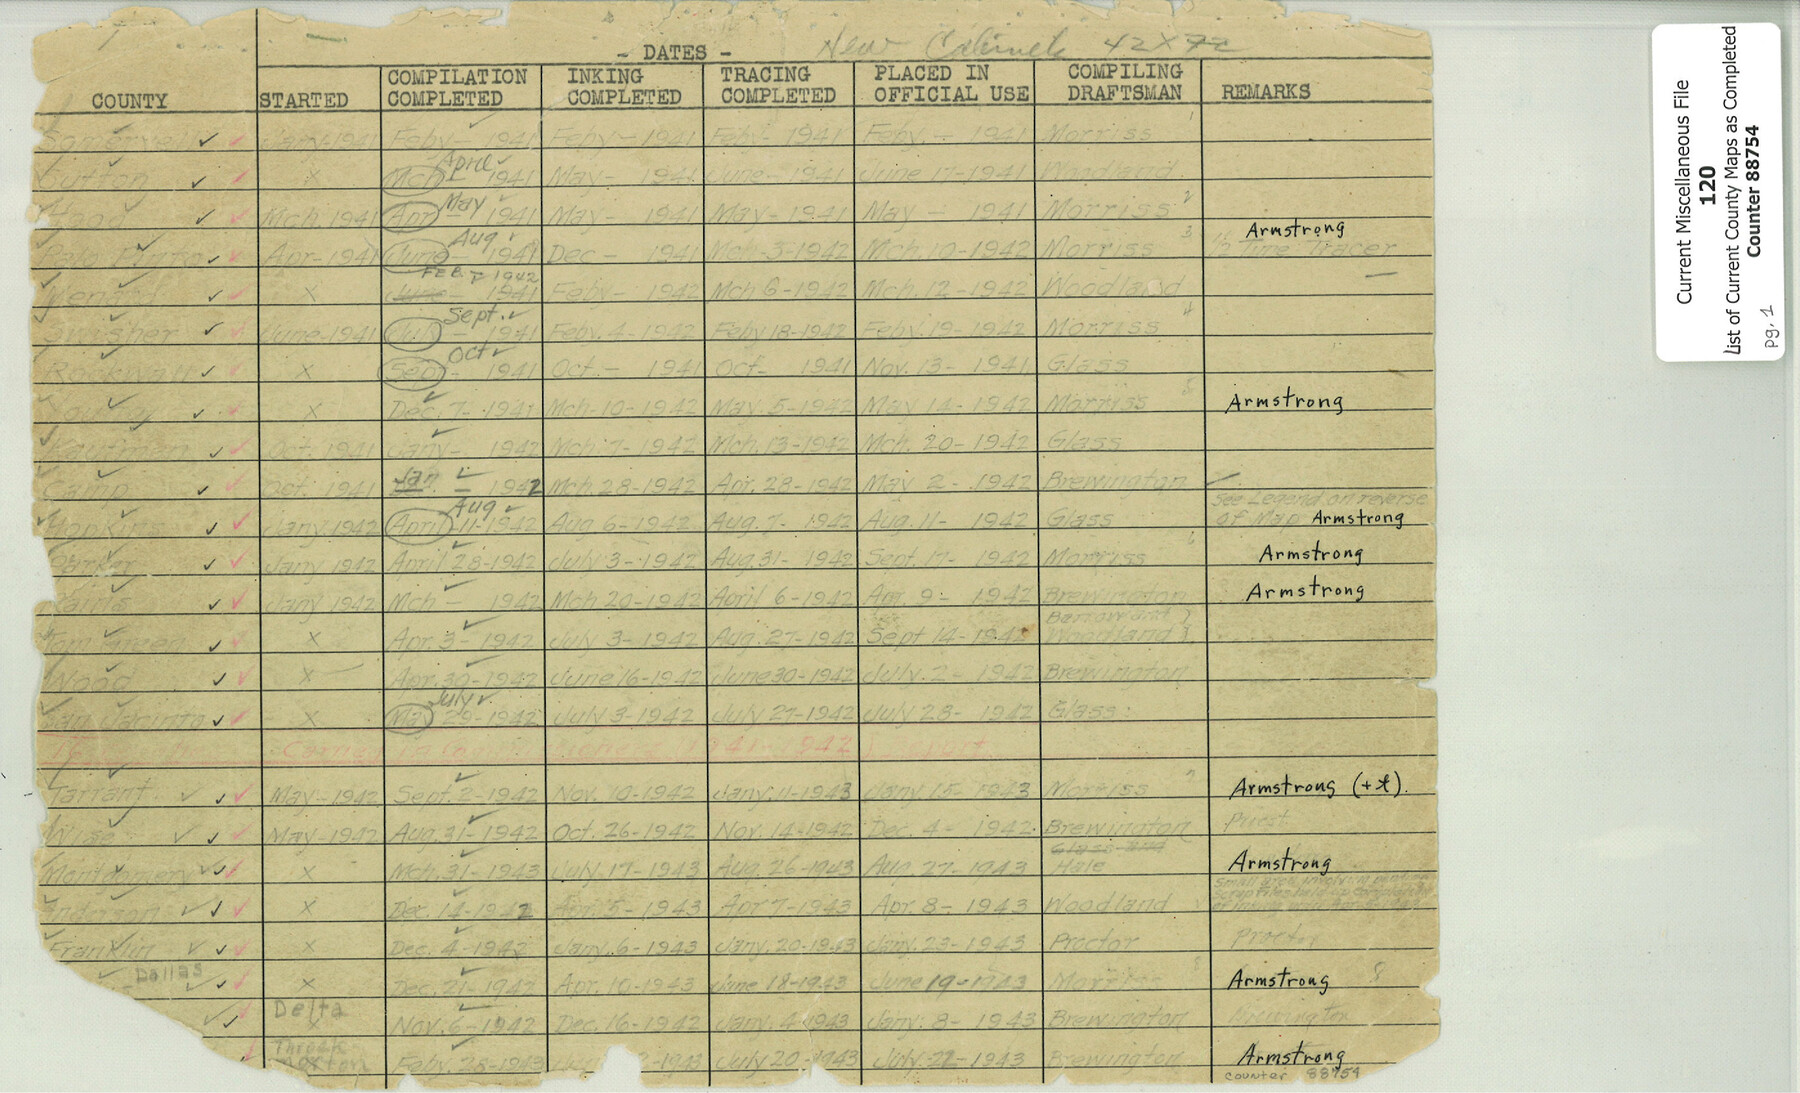 - DATES - New Cabinet 42 X 72
COUNTY STARTED COMPILATION COMPLETED INKING COMPLETED TRACING COMPLETED PLACED IN OFFICIAL USE COMPILING DRAFTSMAN REMARKS
Somervell ✓ Jany-1941 Feby - 1941 Feby - 1941 Feby - 1941 Feby. - 1941 Morriss 1
Sutton ✓ X Mch April - 1941 May - 1941 June - 1941 June 17-1941 Woodland
Hood ✓ Mch. 1941 Apr May - 1941 May - 1941 May - 1941 May - 1941 Morriss 2
Palo Pinto ✓ Apr-1941 June Aug. - 1941 Dec - 1941 Mch-3-1942 Mch. 10-1942 Morriss 3 Armstrong Time Tracer
Menard ✓ X June FEB. - 1942 1941 Feby - 1942 Mch 6-1942 Mch. 12-1942 Woodland
Swisher ✓ June-1941 July Sept. 1941 Feby. 4-1942 Feby 18-1942 Feby. 19-1942 Morriss 4
Rockwall ✓ X Sep Oct - 1941 Oct. - 1941 Oct - 1941 Nov. 13-1941 Glass
✓ X Dec. 7-1941 Mch 10-1942 May 5-1942 May 14-1942 Morriss 5 Armstrong
Kaufman ✓ Oct. 1941 Jany - 1942 Mch. 7-1942 Mch. 13-1942 Mch. 20-1942 Glass
Camp ✓ Oct. 1941 Jan - 1942 Mch. 28-1942 Apr. 28-1942 May 2-1942 Brewington
Hopkins ✓ Jany. 1942 April Aug 11-1942 Aug. 6-1942 Aug. 7-1942 Aug. 11-1942 Glass See Legend on reverse of Map Armstrong
Parker ✓ Jany 1942 April 28-1942 July 3-1942 Aug. 31-1942 Sept. 17-1942 Morriss 6 Armstrong
Rains ✓ Jany 1942 Mch - 1942 Mch 20-1942 April 6-1942 Apr. 9-1942 Brewington Armstrong
Tom Green ✓ X Apr. 3-1942 July 3-1942 Aug. 27-1942 Sept 14-1942 Barrow and Woodland
Wood ✓ X Apr. 30-1942 June 16-1942 June 30-1942 July. 2-1942 Brewington
San Jacinto ✓ X May July 29-1942 July 3-1942 July 27-1942 July 28-1942 Glass
Tarrant ✓ ✓ May-1942 Sept. 2-1942 Nov. 10-1942 Jany. 11-1943 Jany 15-1943 Morriss 7 Armstrong (+t).
Wise ✓ ✓ May-1942 Aug. 31-1942 Oct. 26-1942 Nov. 14-1942 Dec. 4-1942 Brewington
Montgomery ✓ ✓ X Mch. 31-1943 July. 17-1943 Aug. 26-1943 Aug. 27-1943 Glass and Hale Armstrong
Anderson ✓ ✓ X Dec. 14-1942 Apr. 5-1943 Apr 7-1943 Apr. 8-1943 Woodland
Franklin ✓ ✓ X Dec. 4-1942 Jany. 6-1943 Jany. 20-1943 Jany. 23-1943 Proctor Proctor
Dallas ✓ ✓ X Dec. 21-1942 Apr. 10-1943 June 18-1943 June 19-1943 Morriss 8 Armstrong 8
✓ ✓ Delta Nov. 6-1942 Dec. 16-1942 Jany. 4-1943 Jany. 8-1943 Brewington Brewington
Feby. 25-1943 2-1943 July 20-1943 July 22-1943 Brewington Armstrong
counter 88754
Current Miscellaneous File
120
List of Current County Maps as Completed
Counter 88754
pg. 1